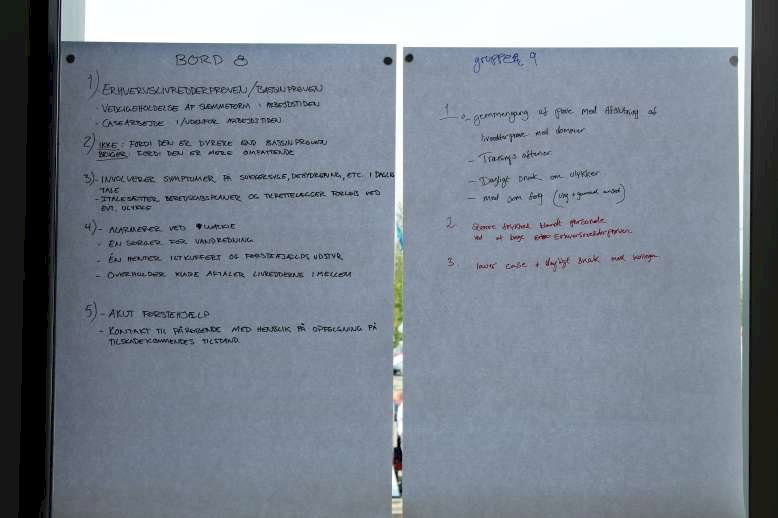 BORD 8
1) ERHVERVSLIVREDDERPRØVEN/BASSINPRØVEN
- VEDLIGEHOLDELSE AF SVØMMEFORM I ARBEJDSTIDEN
- CASEARBEJDE I/UDENFOR ARBEJDSTIDEN
2) IKKE: FORDI DEN ER DYRERE END BASSINPRØVEN
BRUGER: FORDI DEN ER MERE OMFATTENDE
3) - INVOLVERER SYMPTOMER PÅ SUKKERSYGE, DEHYDRERING, ETC. I DAGLIG
TALE
- ITALESÆTTER BEREDSKABSPLANER OG TILRETTELÆGGER FORLØB VED
EVT. ULYKKE
4) - ALARMERER VED WALKIE
- ÉN SØRGER FOR VANDREDNING
- ÉN HENTER ILTKUFFERT OG FØRSTEHJÆLPSUDSTYR
- OVERHOLDER KLARE AFTALER LIVREDDERNE IMELLEM
5) - AKUT FØRSTEHJÆLP
- KONTAKT TIL PÅRØRENDE MED HENBLIK PÅ OPFØLGNING PÅ
TILSKADEKOMMENDES TILSTAND.
gruppe 9
1. gennemgang af prøve med afslutning af
livredderprøve med dommer
- Trænings aftener
- Dagligt snak om ulykker
- med som følg (ung + gammel ansat)
2. Større tryghed blandt personale
ved at bruge Erhvervslivredderprøven
3. laver case + dagligt snak med kolleger